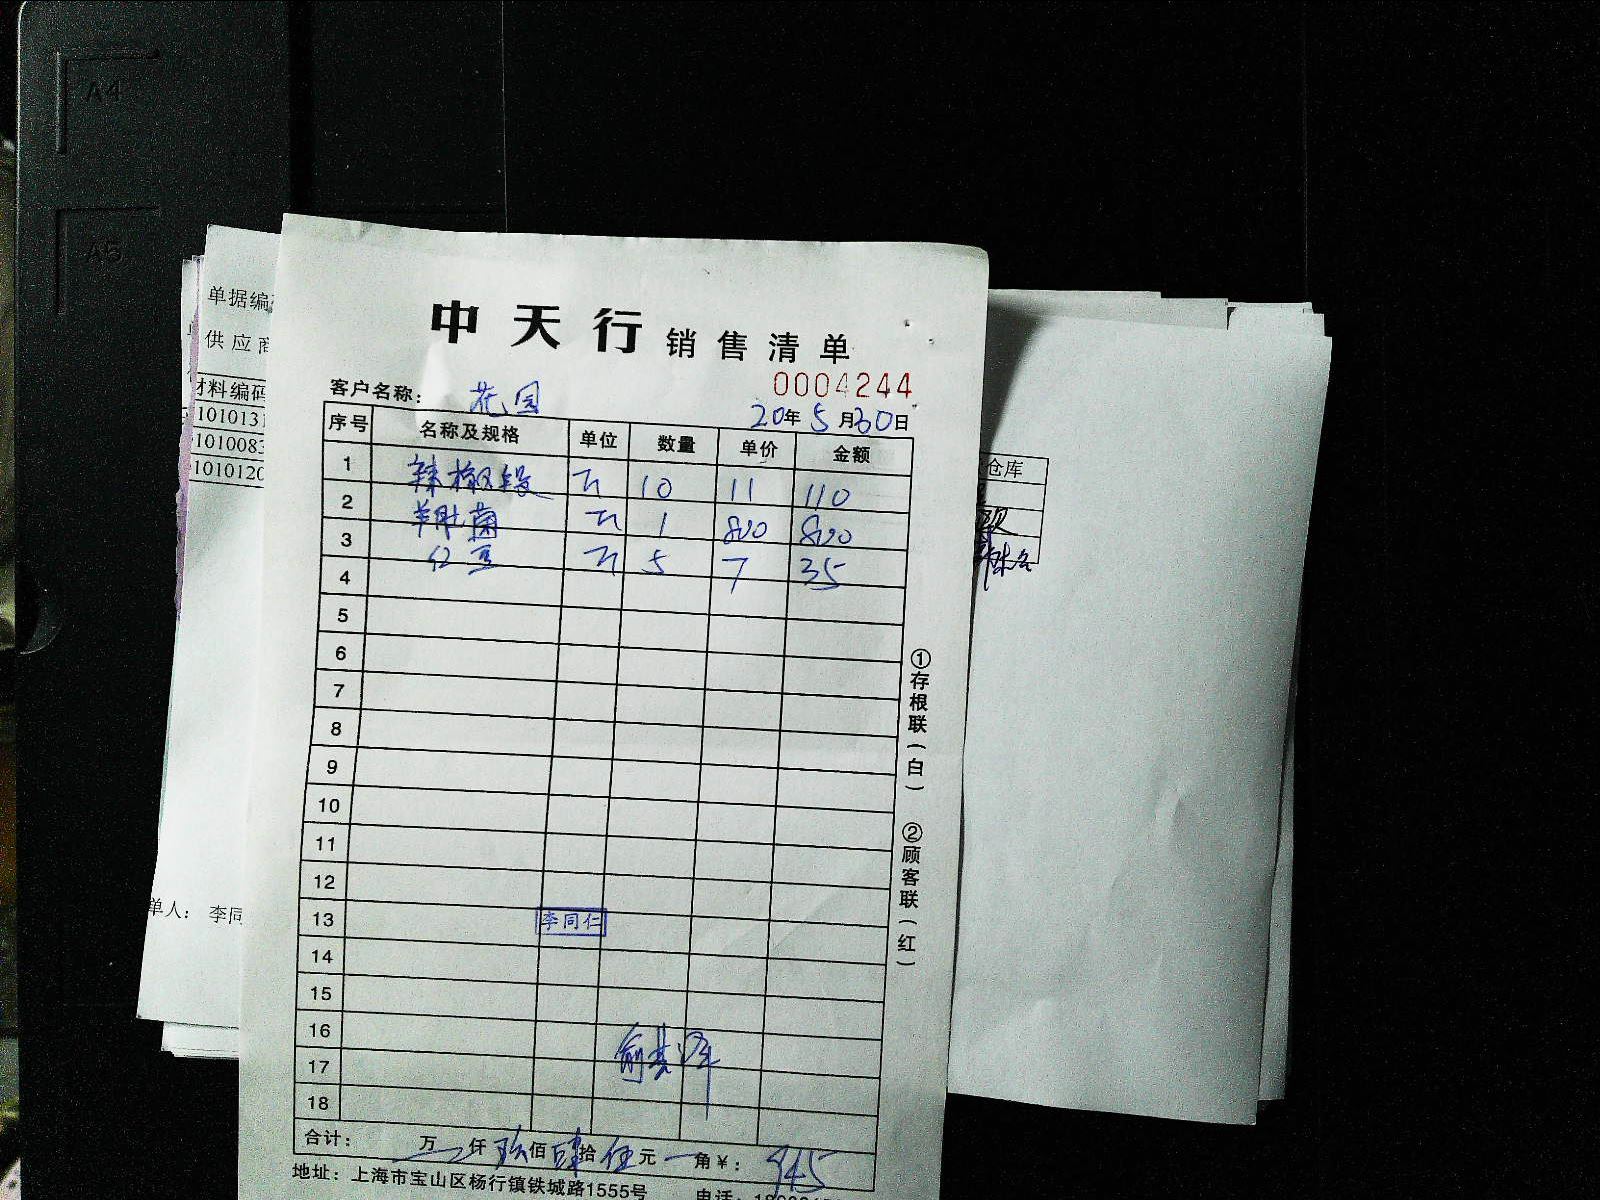 A4
A5
单据编
供应商
材料编码
1010131
1010083
1010120
单人： 李同
中天行 销售清单
0004244
客户名称： 花园
20年5月30日
序号 名称及规格 单位 数量 单价 金额
1 辣椒段 斤 10 11 110
2 羊肚菌 斤 1 800 800
3 红豆 斤 5 7 35
4
5
6
7
8
9
10
11
12
13 李同仁
14
15
16
17
18
合计： 万 仟 玖佰肆拾伍元 角￥： 945
地址：上海市宝山区杨行镇铁城路1555号 电话：
①存根联（白） ②顾客联（红）
仓库